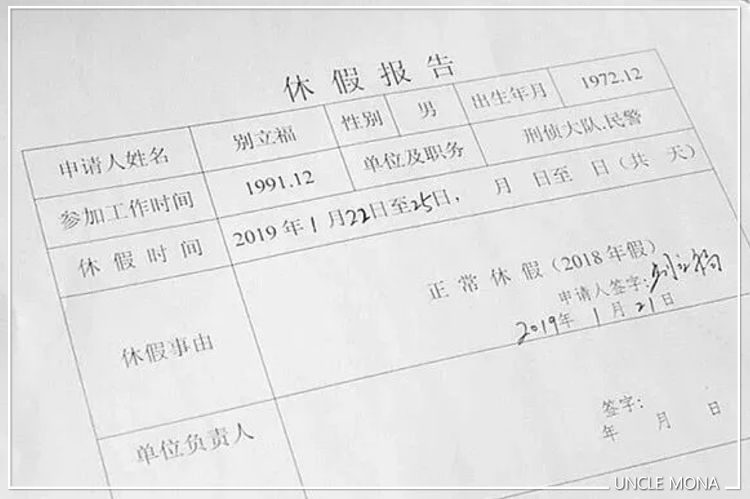 休假报告
申请人姓名 别立福 性别 男 出生年月 1972.12
参加工作时间 1991.12 单位及职务 刑侦大队.民警
休假时间 2019年1月22日至25日, 月 日至 日(共 天)
休假事由 正常休假(2018年假)
申请人签字:别立福
2019年1月21日
单位负责人 签字:
年 月 日
UNCLE MONA